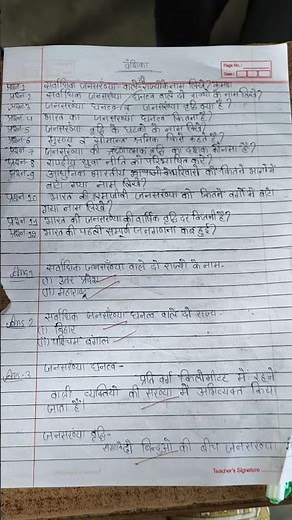 Page No.:
Date:
वंशिका
प्रश्न.1 सर्वाधिक जनसंख्या वाले राज्यों के नाम लिखें?
प्रश्न.2 सर्वाधिक जनसंख्या घनत्व वाले दो राज्यों के नाम लिखें?
प्रश्न.3 जनसंख्या घनत्व व जनसंख्या वृद्धि क्या है?
प्रश्न.4 भारत का जनसंख्या घनत्व कितना है?
प्रश्न.5 जनसंख्या वृद्धि के घटकों के नाम लिखें?
प्रश्न.6 मुख्य व सीमान्त श्रमिक किसे कहते हैं?
प्रश्न.7 जनसंख्या की वृद्धि का दशक कौनसा है?
प्रश्न.8 राष्ट्रीय युवा नीति को परिभाषित करें?
प्रश्न.9 आधुनिक भारतीय को कितने भागों में
बांटा गया नाम लिखें?
प्रश्न.10 भारत की श्रमजीवी जनसंख्या को कितने वर्गों में बांटा
गया नाम लिखें?
प्रश्न.11 भारत की जनसंख्या की वार्षिक वृद्धि दर कितनी है?
प्रश्न.12 भारत की पहली सम्पूर्ण जनगणना कब हुई?
Ans.1 सर्वाधिक जनसंख्या वाले दो राज्यों के नाम-
(I) उतर प्रदेश
(II) महाराष्ट्र
Ans.2 सर्वाधिक जनसंख्या घनत्व वाले दो राज्य-
(I) बिहार
(II) पश्चिम बंगाल
Ans.3 जनसंख्या घनत्व-
प्रति वर्ग किलोमीटर में रहने
वाली व्यक्तियों की संख्या में अभिव्यक्त किया
जाता है।
जनसंख्या वृद्धि-
समय के दो बिन्दुओं के बीच जनसंख्या
Teacher's Signature